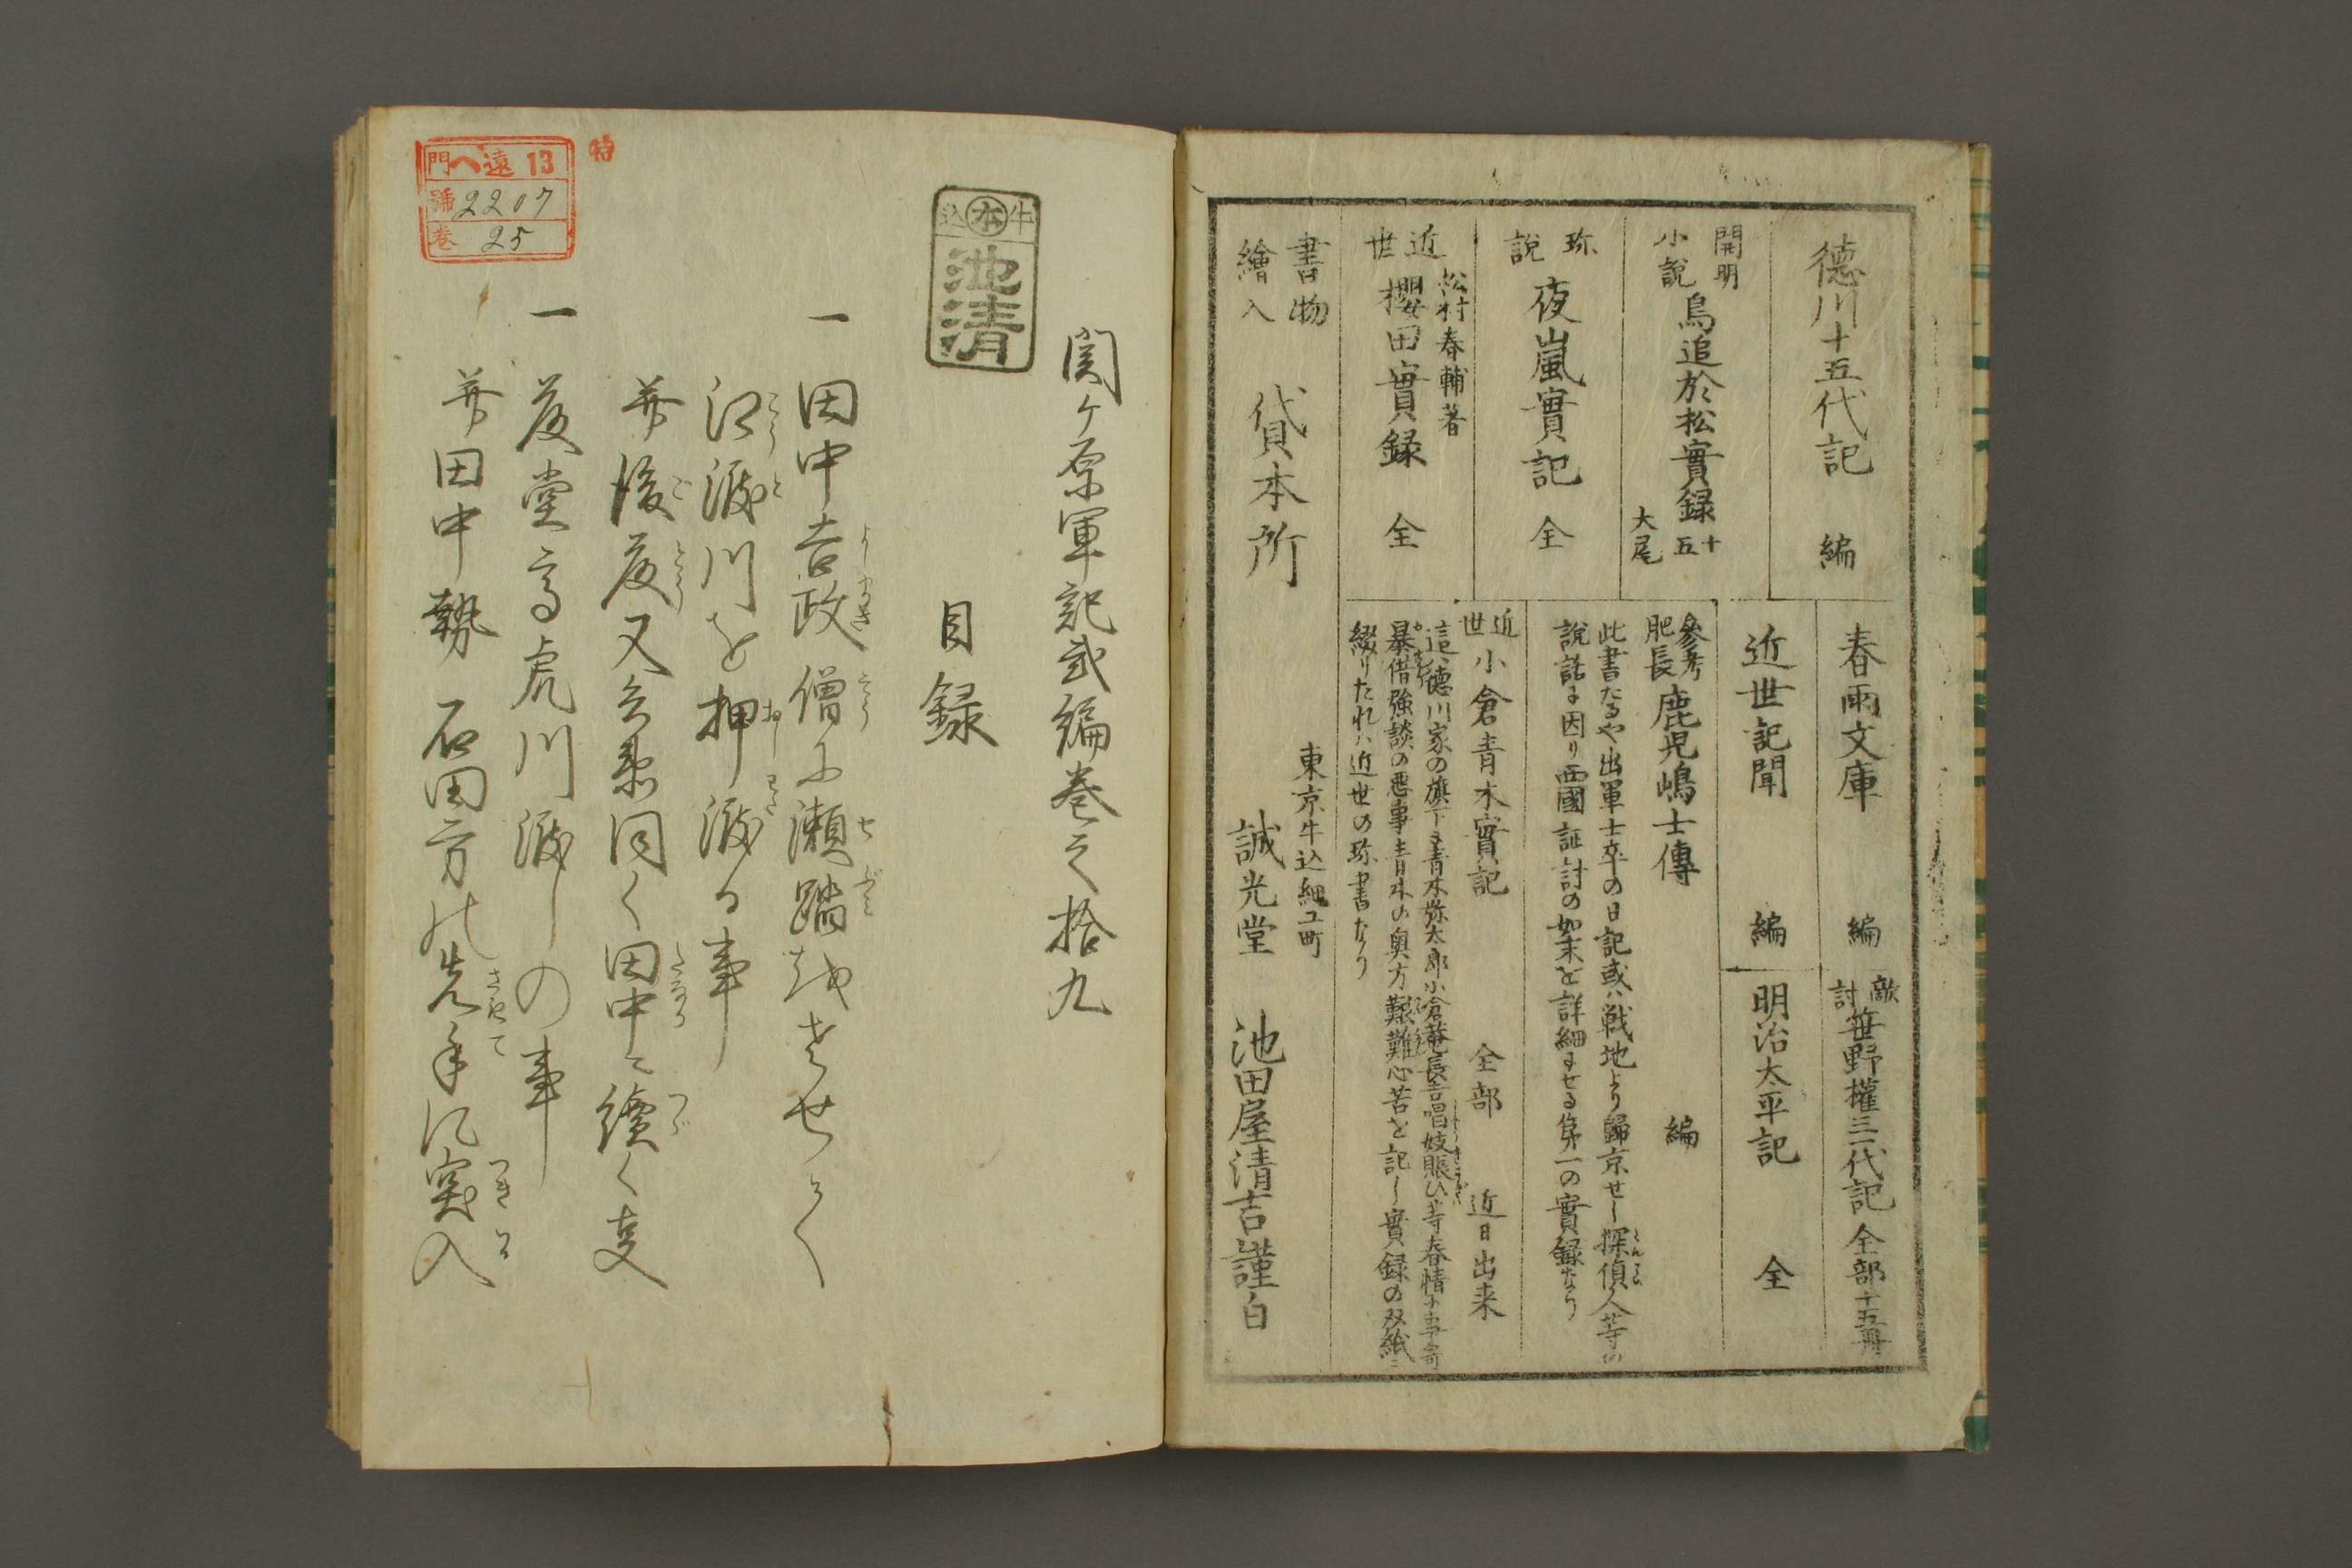 徳川十五代記　編
開明小説　鳥追於松實録　十五大尾
珎説　夜嵐實記　全
松村春輔著
近世　櫻田實録　全
春雨文庫　編
敵討　笹野權三一代記　全部十五冊
近世記聞　編
明治太平記　全
參考肥長　鹿児嶋士傳　編
此書たるや出軍士卒の日記或ハ戦地より歸京せし探偵人等の
説話に因り西國証討の始末を詳細にせる第一の實録なり
近世　小倉青木實記　全部　近日出来
這ハ徳川家の旗下に青木弥太郎小倉菴長吉唱妓賑ひ等春情
暴借強談の悪事青木の奥方艱難心苦を記し實録の双紙
綴りたれハ近世の珎書なり
書物繪入　貸本所
東京牛込細工町
誠光堂　池田屋清吉謹白
牛本込
池清
関ヶ原軍記貳編巻之拾九
目録
一　田中吉政僧に瀬踏
江渡川を押渡る事
并後藤又兵衛同く田中に續く事
一　藤堂高虎川渡しの事
并田中勢石田方の先手に突入
特
門ヘ遠13
號2207
巻25